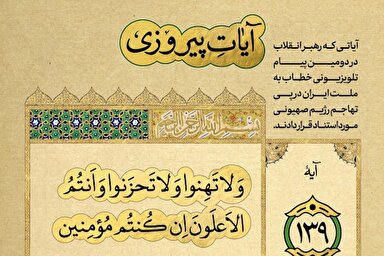 آیاتِ پیروزی
آیاتی که رهبر انقلاب
در دومین پیام
تلویزیونی خطاب به
ملت ایران در پی
تهاجم رژیم صهیونی
مورد استناد قرار دادند.
بسم الله الرحمن الرحیم
وَلا تَهِنوا وَلا تَحزَنوا وَأَنتُمُ
الأَعلَونَ إِن كُنتُم مُؤمِنين
آیهٔ
۱۳۹